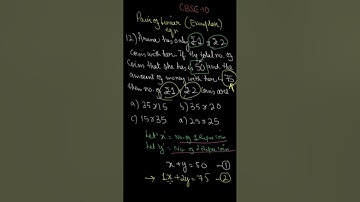 CBSE-10
Pair of linear (Examples)
eqn
12) Aruna has only ₹1 & ₹2
coins with her. If the total no. of
coins that she has is 50 and the
amount of money with her is ₹75
then no. of ₹1 & ₹2 coins are
a) 35 & 15 b) 35 & 20
c) 15 & 35 d) 25 & 25
Let 'x' = No. of 1 Rupee coin
Let 'y' = No. of 2 Rupee coin
x + y = 50 - ①
→ 1x + 2y = 75 - ②